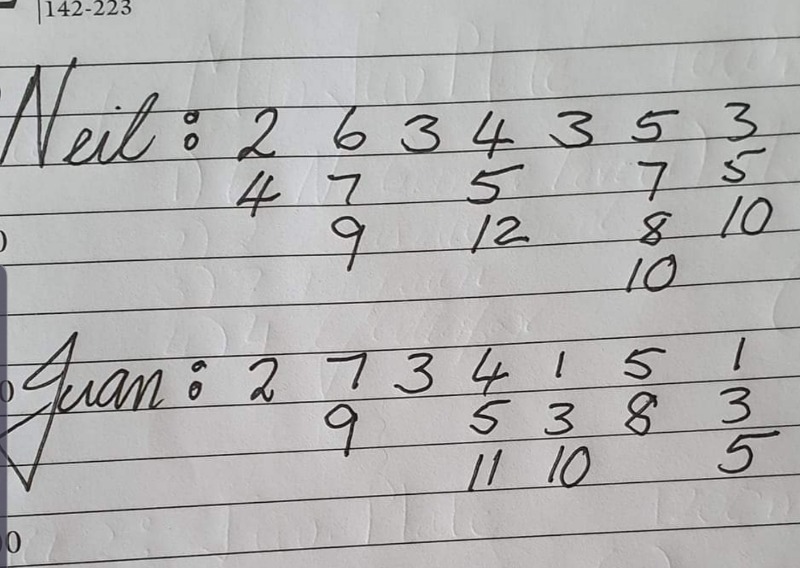 142-223
Neil: 2 6 3 4 3 5 3
4 7 5 7 5
9 12 8 10
10
Juan: 2 7 3 4 1 5 1
9 5 3 8 3
11 10 5